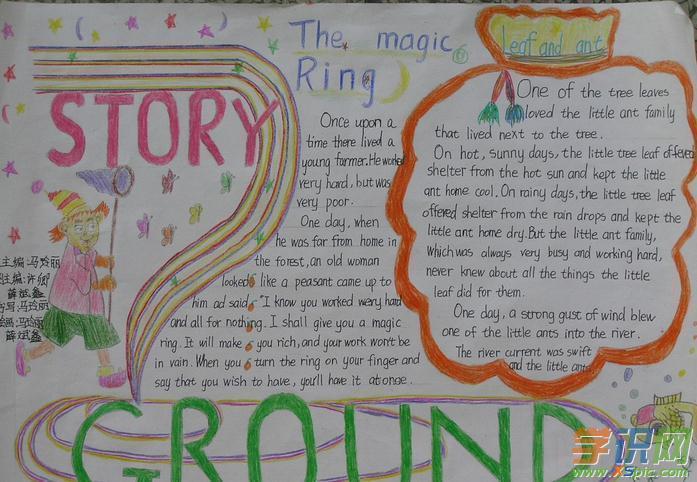 STORY
The magic
Ring
Once upon a
time there lived a
young farmer. He worked
very hard, but was
very poor.
One day, when
he was far from home in
the forest, an old woman
looked like a peasant came up to
him ad said, "I know you worked wery hard
and all for nothing. I shall give you a magic
ring. It will make you rich, and your work won't be
in vain. When you turn the ring on your finger and
say that you wish to have, you'll have it at once.
Leaf and ant
One of the tree leaves
loved the little ant family
that lived next to the tree.
On hot, sunny days, the little tree leaf offered
shelter from the hot sun and kept the little
ant home cool. On rainy days, the little tree leaf
offered shelter from the rain drops and kept the
little ant home dry. But the little ant family,
which was always very busy and working hard,
never knew about all the things the little
leaf did for them.
One day, a strong gust of wind blew
one of the little ants into the river.
The river current was swift
and the little ant
主编:马玲丽
GROUND
学识网
www.xspic.com